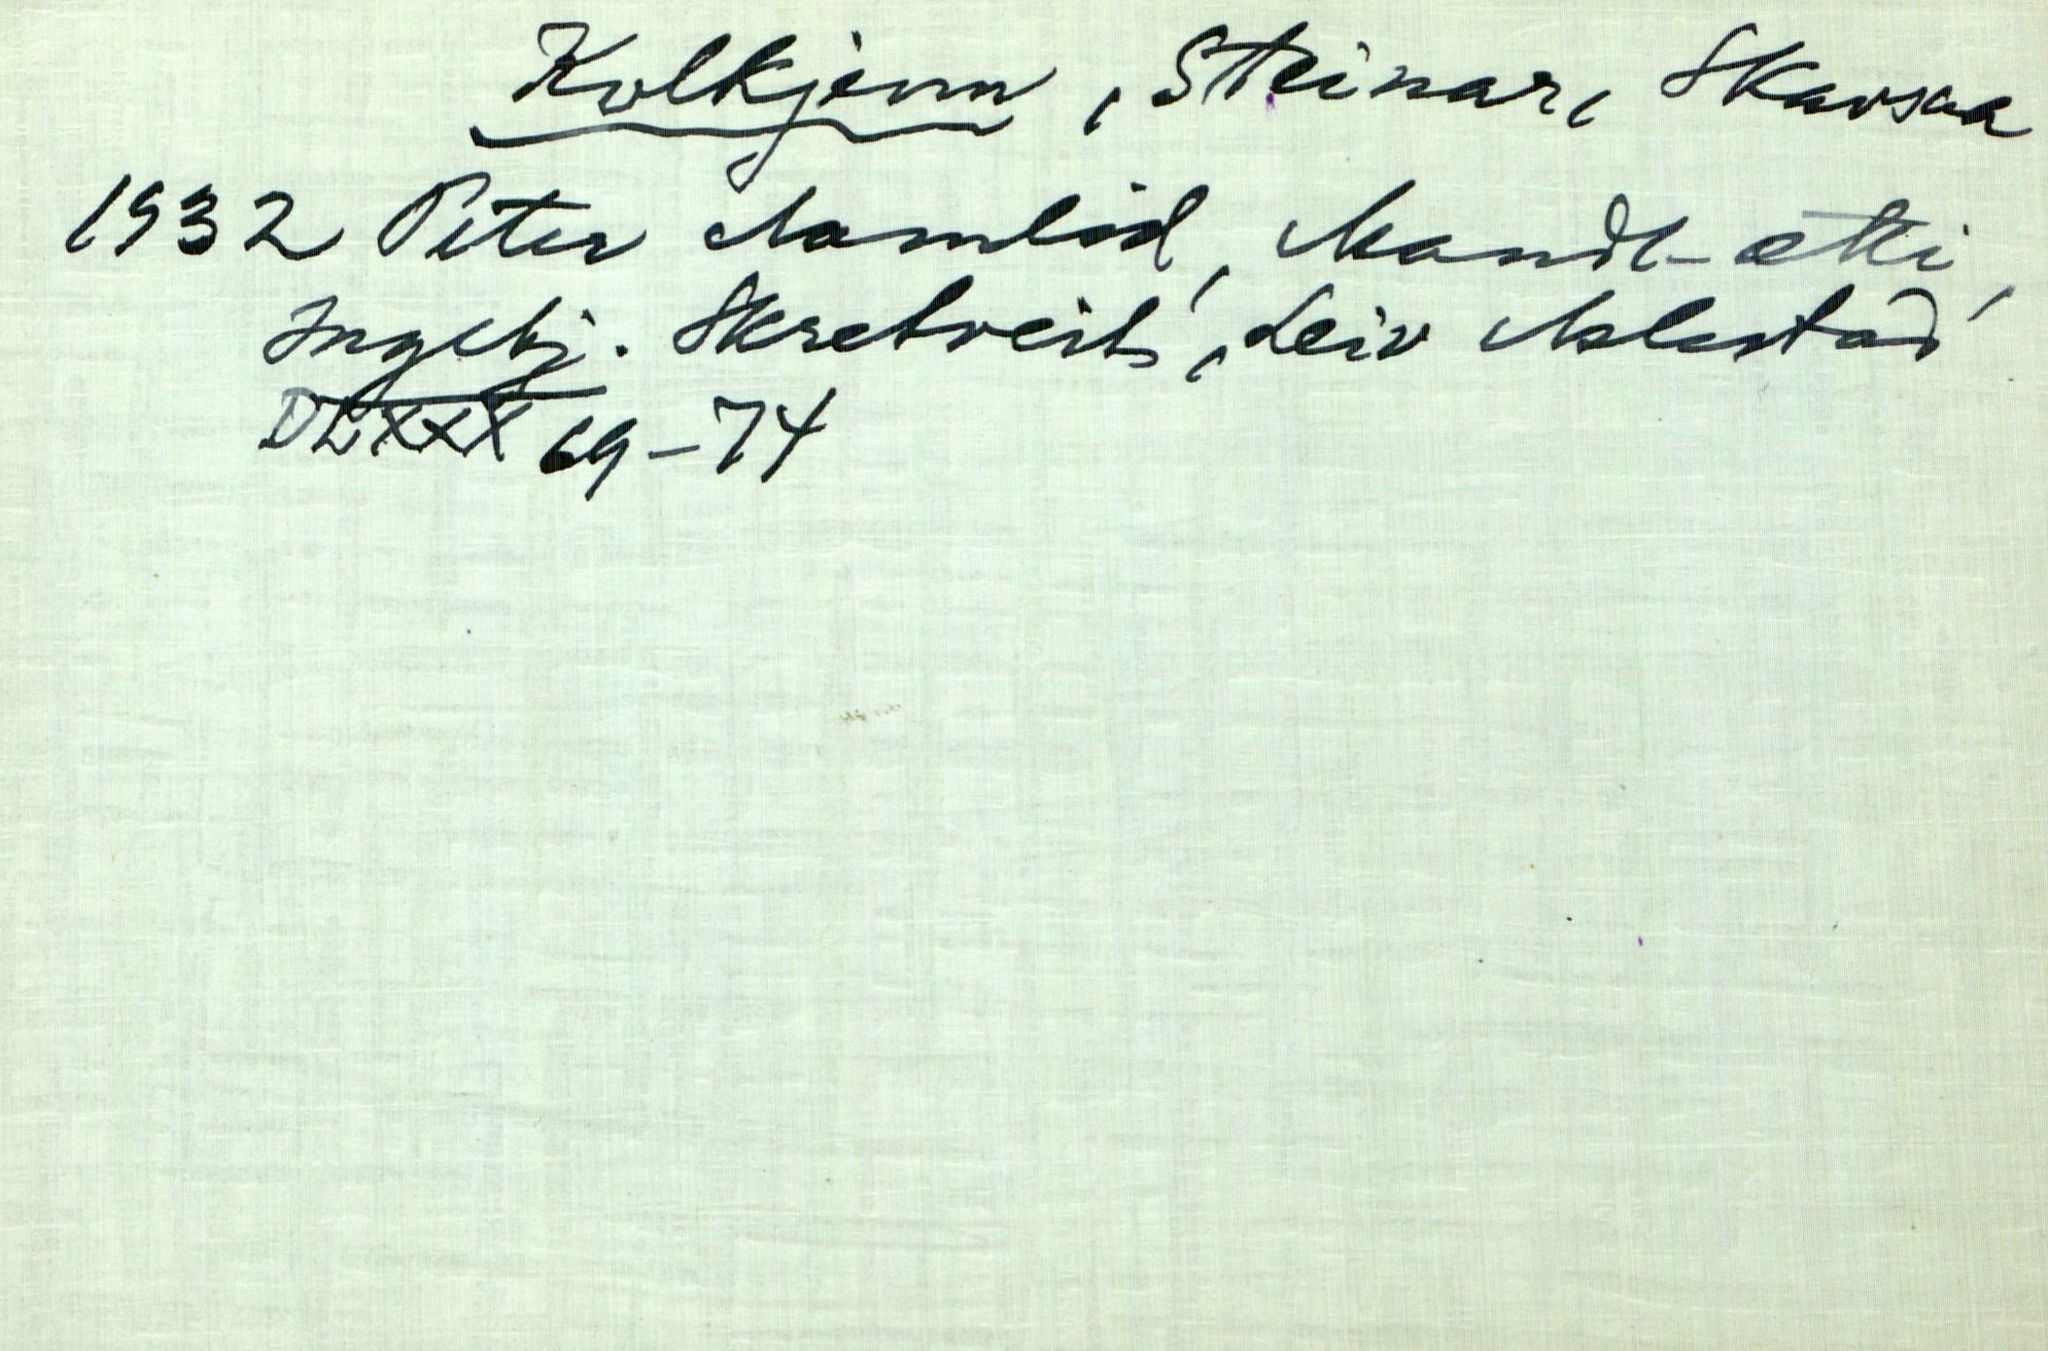 Kolkjenn, Steinar, Skavsaa
1932 Peter Aamlid, Mandt-ætti,
Ingebj. Skretveit, Leiv Aslestad
DLXXX 69-74